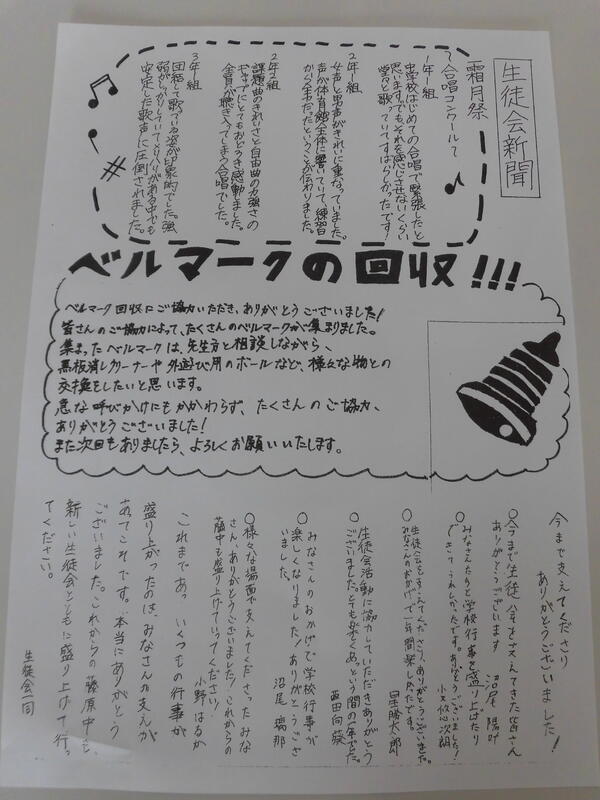 生徒会新聞
霜月祭
〜合唱コンクール〜
1年1組
中学校はじめての合唱で緊張したと
思いますが、それを感じさせないくらい
堂々と歌っていてすばらしかったです!
2年1組
女声と男声がきれいに重なっていました。
声が体育館全体に響いていて、練習
からの全力だったということが伝わりました。
2年2組
課題曲のきれいさと自由曲の力強さの
ギャップにとてもおどろき感動しました。
全員が聴き入ってしまう合唱でした。
3年1組
団結して歌っている姿が印象的でした。強
弱がしっかりしていてメリハリがある中でも
安定した歌声に圧倒されました。
ベルマークの回収!!!
ベルマーク回収にご協力いただき、ありがとうございました!
皆さんのご協力によって、たくさんのベルマークが集まりました。
集まったベルマークは、先生方と相談しながら、
黒板消しクリーナーや外遊び用のボールなど、様々な物との
交換をしたいと思います。
急な呼びかけにもかかわらず、たくさんのご協力、
ありがとうございました!
また次回もありましたら、よろしくお願いいたします。
今まで支えてくださり
ありがとうございました!
○今まで生徒会を支えてきた皆さん
ありがとうございます 沼尾 陽叶
○みなさんたちと学校行事を盛り上げたり
できてうれしかったです。ありがとうございました!
次朗
○生徒会を支えてくださり、ありがとうございました。
みなさんのおかげで一年間楽しかったです。
星 勝太郎
○生徒会活動に協力していただきありがとう
ございました。とても楽しくあっという間の一年でした。
西田 向葵
○みなさんのおかげで学校行事が
楽しくなりました!ありがとうござ
いました。 沼尾 璃那
○様々な場面で支えてくださったみな
さん、ありがとうございました!これからの
藤中も盛り上げていってください!
小野 はるか
これまであったいくつもの行事が
盛り上がったのは、みなさんの支えが
あってこそです。本当にありがとう
ございました。これからの藤原中も
新しい生徒会とともに盛り上げて行っ
てください。
生徒会一同